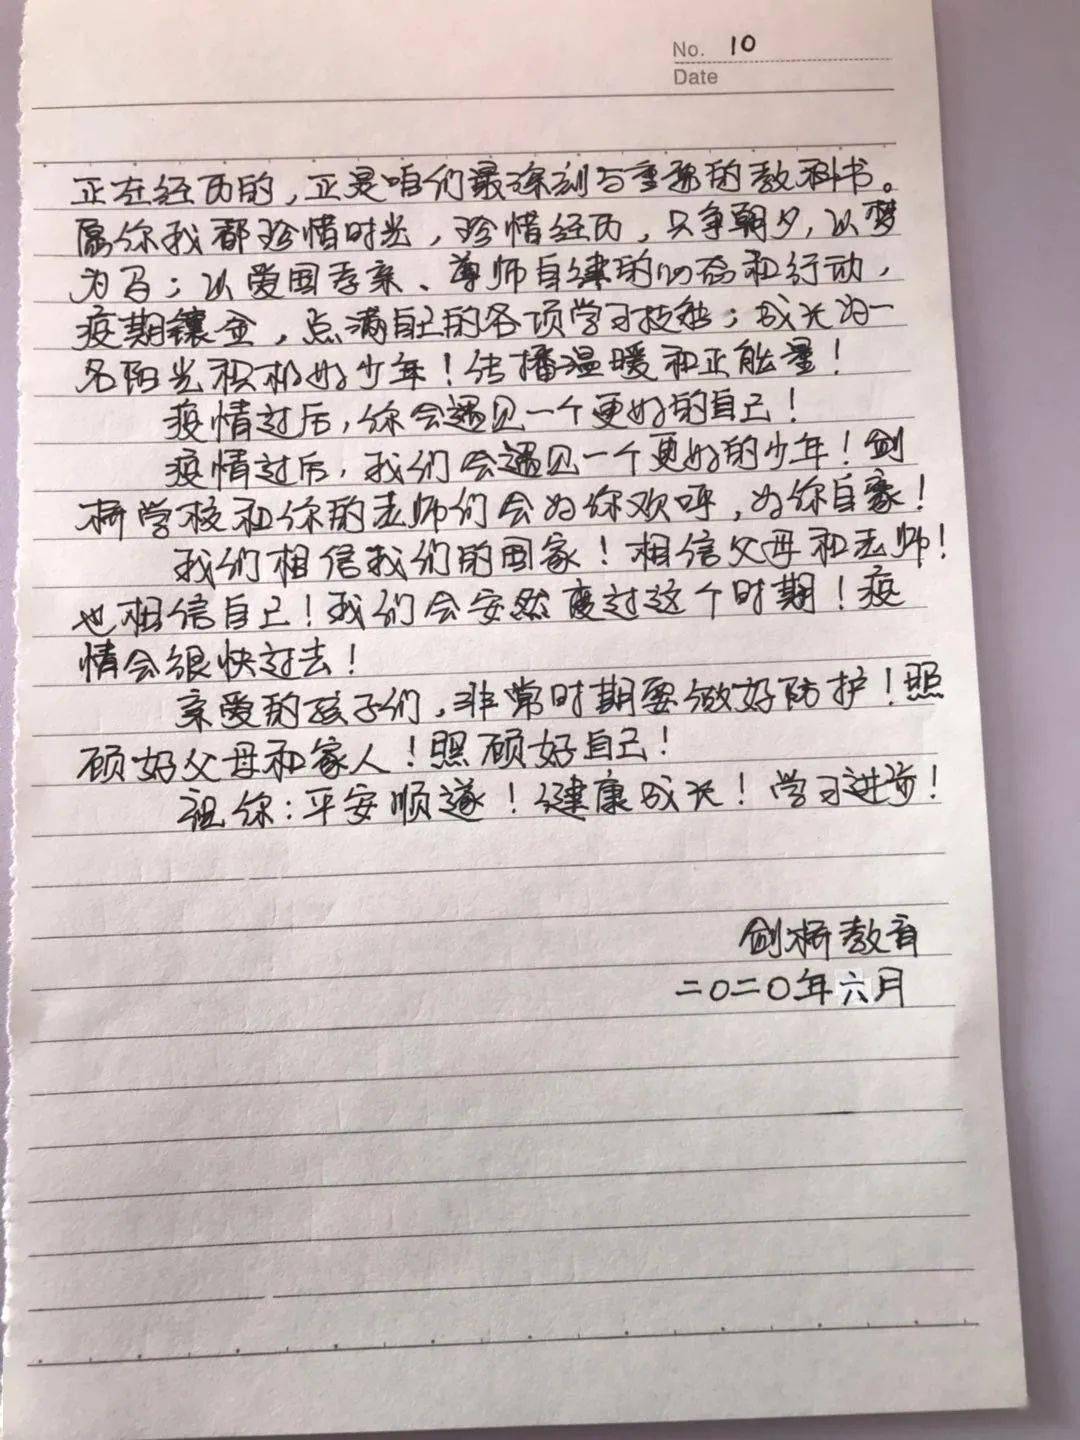 No. 10
Date
正在经历的，正是咱们最深刻与重要的教科书。
愿你我都珍惜时光，珍惜经历，只争朝夕，以梦
为马；以爱国孝亲、尊师自律的心态和行动，
疫期镀金，点满自己的各项学习技能；成长为一
名阳光积极好少年！传播温暖和正能量！
疫情过后，你会遇见一个更好的自己！
疫情过后，我们会遇见一个更好的少年！剑
桥学校和你的老师们会为你欢呼，为你自豪！
我们相信我们的国家！相信父母和老师！
也相信自己！我们会安然度过这个时期！疫
情会很快过去！
亲爱的孩子们，非常时期要做好防护！照
顾好父母和家人！照顾好自己！
祝你：平安顺遂！健康成长！学习进步！
剑桥教育
二〇二〇年六月